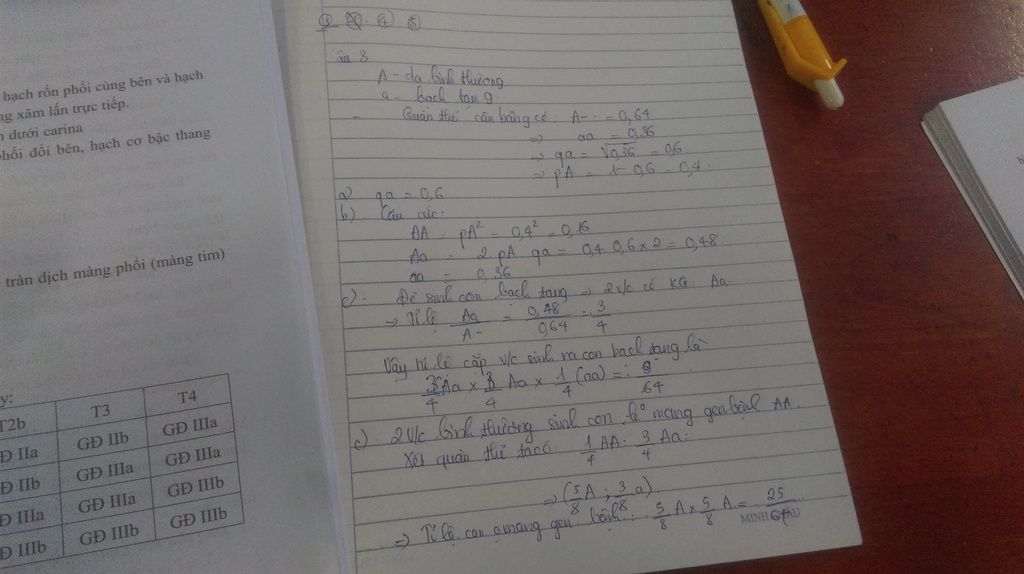 hạch rốn phổi cùng bên và hạch
ng xâm lấn trực tiếp.
dưới carina
phổi đối bên, hạch cơ bậc thang
tràn dịch màng phổi (màng tim)
y:
T2b T3 T4
Đ IIa GĐ IIb GĐ IIIa
Đ IIb GĐ IIIa GĐ IIIa
Đ IIIa GĐ IIIa GĐ IIIb
Đ IIIb GĐ IIIb GĐ IIIb
3
A - da bình thường
a - bạch tạng
- Quần thể cân bằng có A-. = 0,64
=> aa = 0,36
=> qa = √0,36 = 0,6
=> pA = 1 - 0,6 = 0,4
a) qa = 0,6
b) Cấu trúc:
AA = pA² = 0,4² = 0,16
Aa = 2 pA qa = 0,4 0,6 x 2 = 0,48
aa = 0,36
c). Để sinh con bạch tạng => 2 v/c có KG Aa
=> Tỉ lệ Aa/A- = 0,48/0,64 = 3/4
Vậy tỉ lệ cặp v/c sinh ra con bạch tạng là
3/4 Aa x 3/4 Aa x 1/4 (aa) = 9/64
c). 2 v/c bình thường sinh con k° mang gen bệnh AA.
Xét quần thể ta có 1/4 AA : 3/4 Aa.
=> (5/8 A ; 3/8 a)
=> Tỉ lệ con o mang gen bệnh: 5/8 A x 5/8 A = 25/64